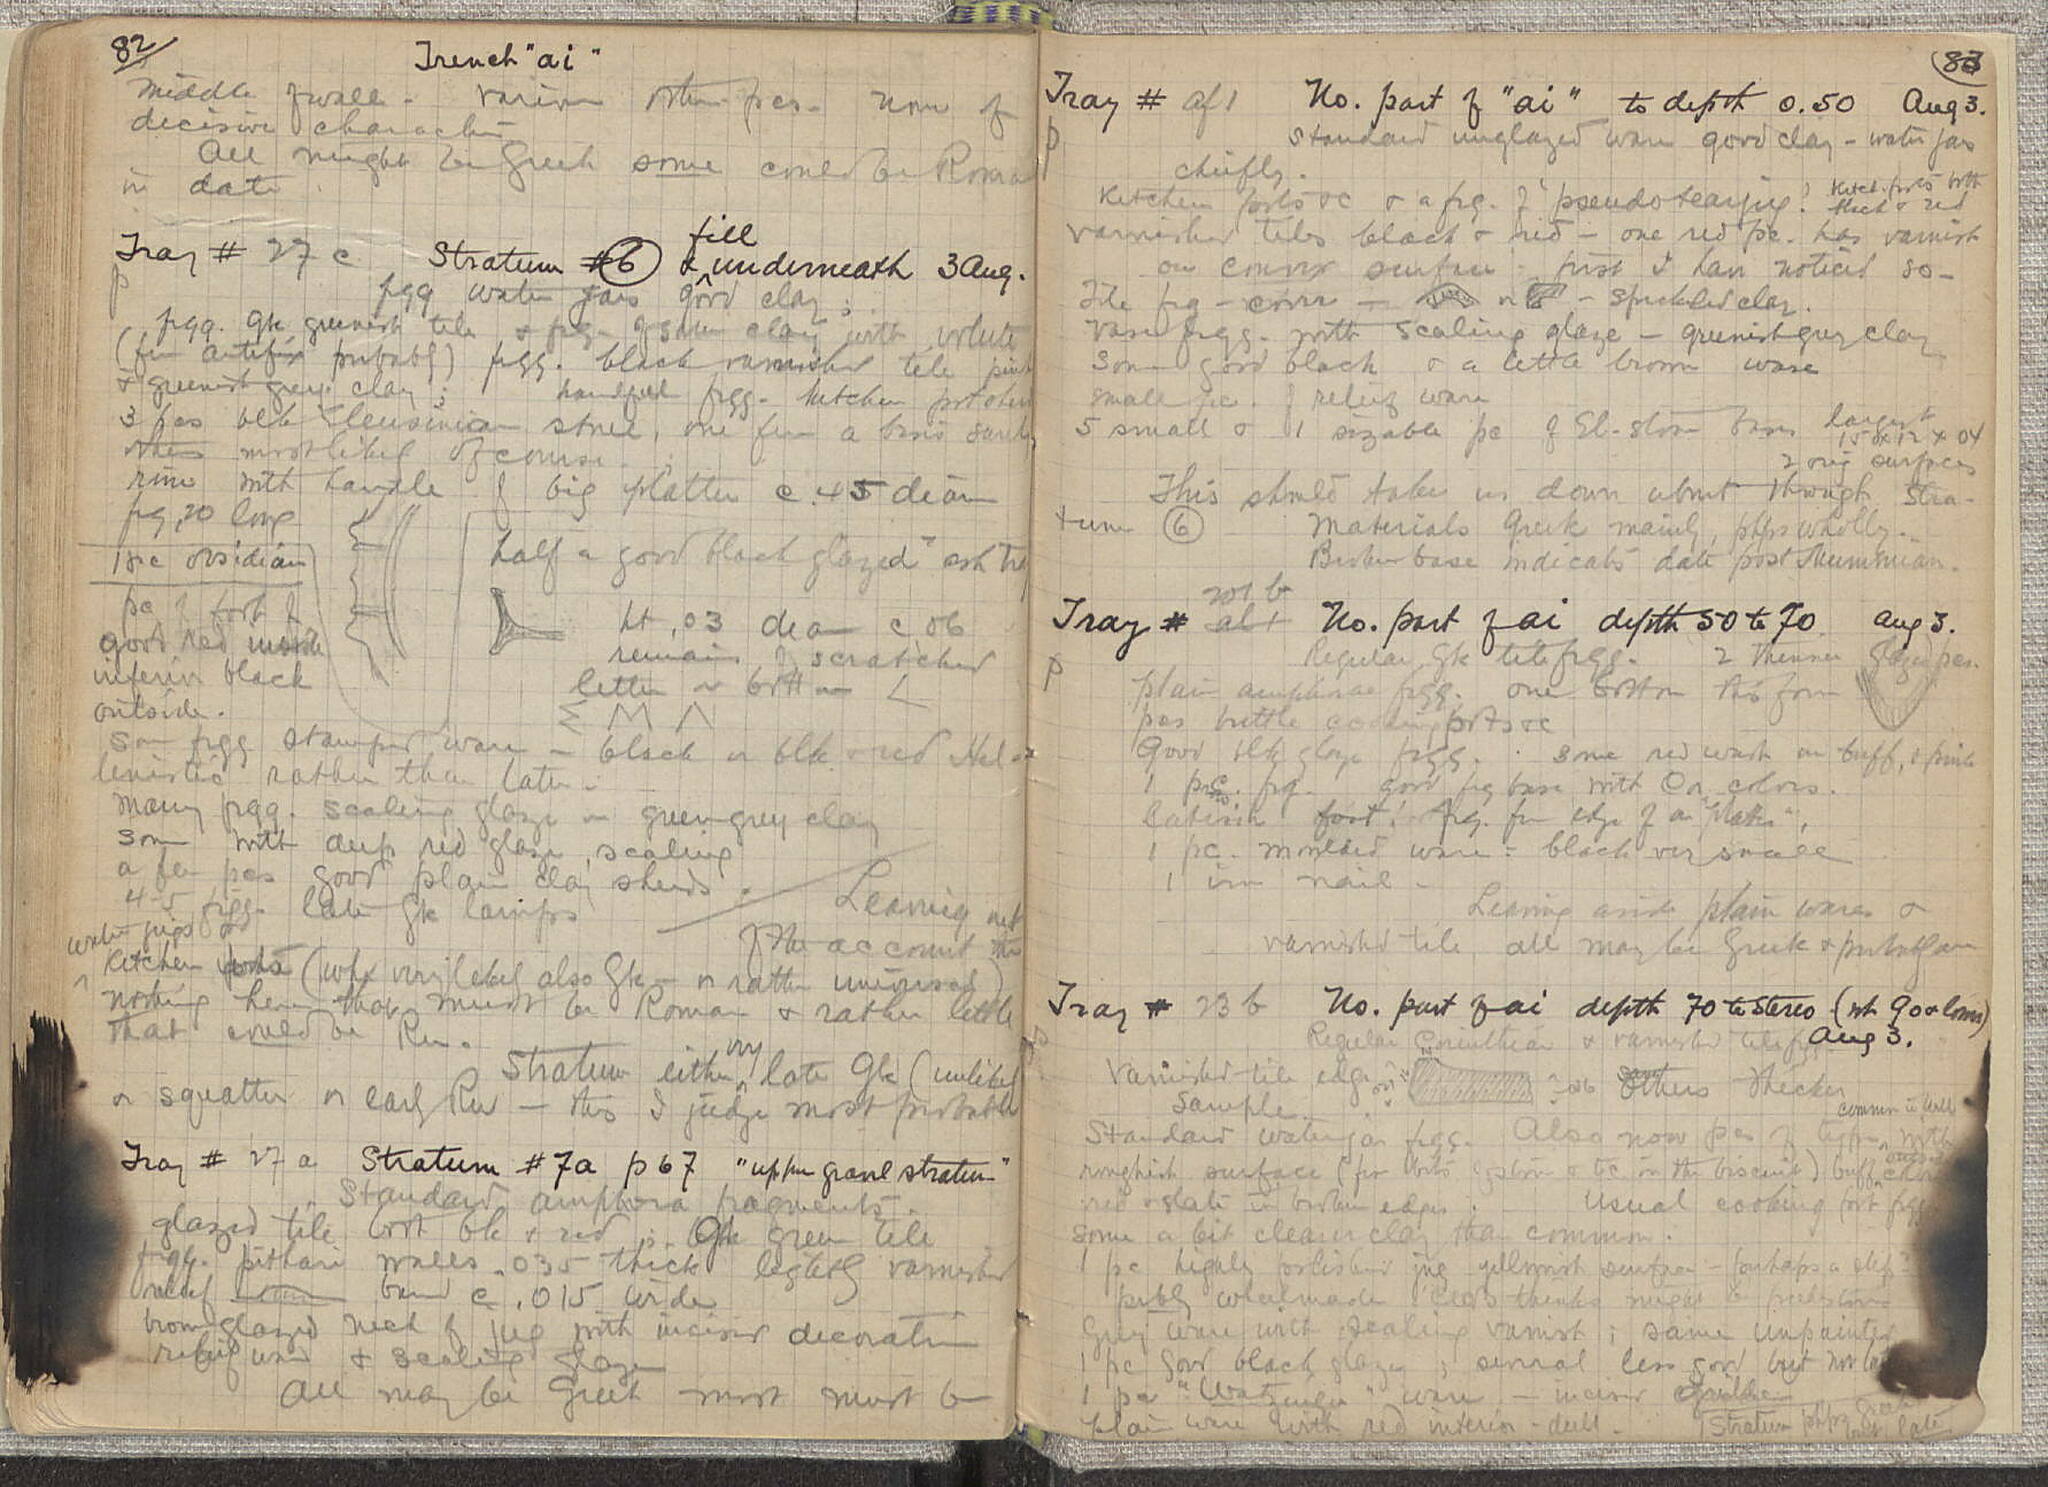 82
Trench "ai"
middle of wall - various other pcs. none of
decisive character
All might be Greek some could be Roman
in date.
Tray # 27 c Stratum #6 & fill underneath 3 Aug.
P
frgg water jars good clay;
frgg. Gk greenish tile & frg. of same clay with volute
(fm antefix probably) frgg. black varnished tile pink
& greenish grey clay; handful frgg. kitchen pot other
3 pcs blk Eleusinian stone, one fm a basis same
others most likely of course.
rim with handle of big platter c .45 diam
frg .20 long
1 pc obsidian
half a good black glazed "ash tray
pc of foot of
good red
interior black
outside.
ht .03 diam c .06
remains of scratched
letter on bottom
some frgg stamped ware - black or blk & red Hel-
lenistic rather than later.
many frgg. scaling glaze on green grey clay
some with deep red glaze, scaling
a few pcs good plain clay sherds.
4-5 frgg. late Gk lamps
Leaving out
of the account the
water jugs &
kitchen pots (wh. very likely also Gk - or rather universal)
nothing here that must be Roman & rather little
that could be Rn.
Stratum either very late Gk (unlikely
or squatter or early Rn - this I judge most probable
Tray # 27 a Stratum #7a p 67 "upper gravel stratum"
Standard amphora fragments.
glazed tile both bk & red; Gk green tile
frgg. pithari walls .035 thick lightly varnished
relief band c .015 wide
brown glazed neck of jug with incised decoration
relief ware & scaling glaze
All may be Greek most must be
83
Tray # af1 No. part of "ai" to depth 0.50 Aug 3.
P
Standard unglazed ware good clay - water jars
chiefly.
Kitchen pots &c & a frg. of 'pseudo tearjug' Kitch. pots both
black & red
varnished tiles black & red - one red pc. has varnish
on convex surface - first I have noticed so -
Tile frg - cover - or - speckled clay.
Vase frgg. with scaling glaze - greenish grey clay
some good black & a little brown ware
small pc. of relief ware
5 small & 1 sizable pc of El-stone bases largest
.15 x .12 x .04
2 orig surfaces
This should take us down about through Stra-
tum 6 Materials Greek mainly, phps wholly.
Broken base indicates date post Mummian.
Tray # No. part of ai depth 50 to 70 Aug 3.
P
Regular Gk tile frgg. 2 thinner glazed pcs.
plain amphorae frgg. one bottom this form
pcs brittle cooking pots &c
Good blk glaze frgg. some red wash on buff, & pink
1 frg. good frg base with On colors.
foot! frg. fm edge of a "platter",
1 pc. moulded ware = black very small
1 iron nail -
Leaving aside plain wares &
varnished tile, all may be Greek & probably are
Tray # 23 b No. part of ai depth 70 to stereo (wh 90 & lower)
Aug 3.
Regular Corinthian & varnished tile frgg
Varnished tile edge .06 some others thicker
Sample
Standard water jar frgg. Also now pcs of type common in well with
roughish surface (for bits of stone & tc in the biscuit) buff outside color
red & slate in broken edges; Usual cooking pot frgg
some a bit cleaner clay than common.
1 pc highly polished jug yellowish surface - perhaps a slip?
probly wheelmade thinks might be prehistoric
Grey ware with scaling varnish; same unpainted
1 pc good black glaze; several less good but not late
1 pc ware - incised
plain ware with red interior - dull. Stratum phps Greek but late